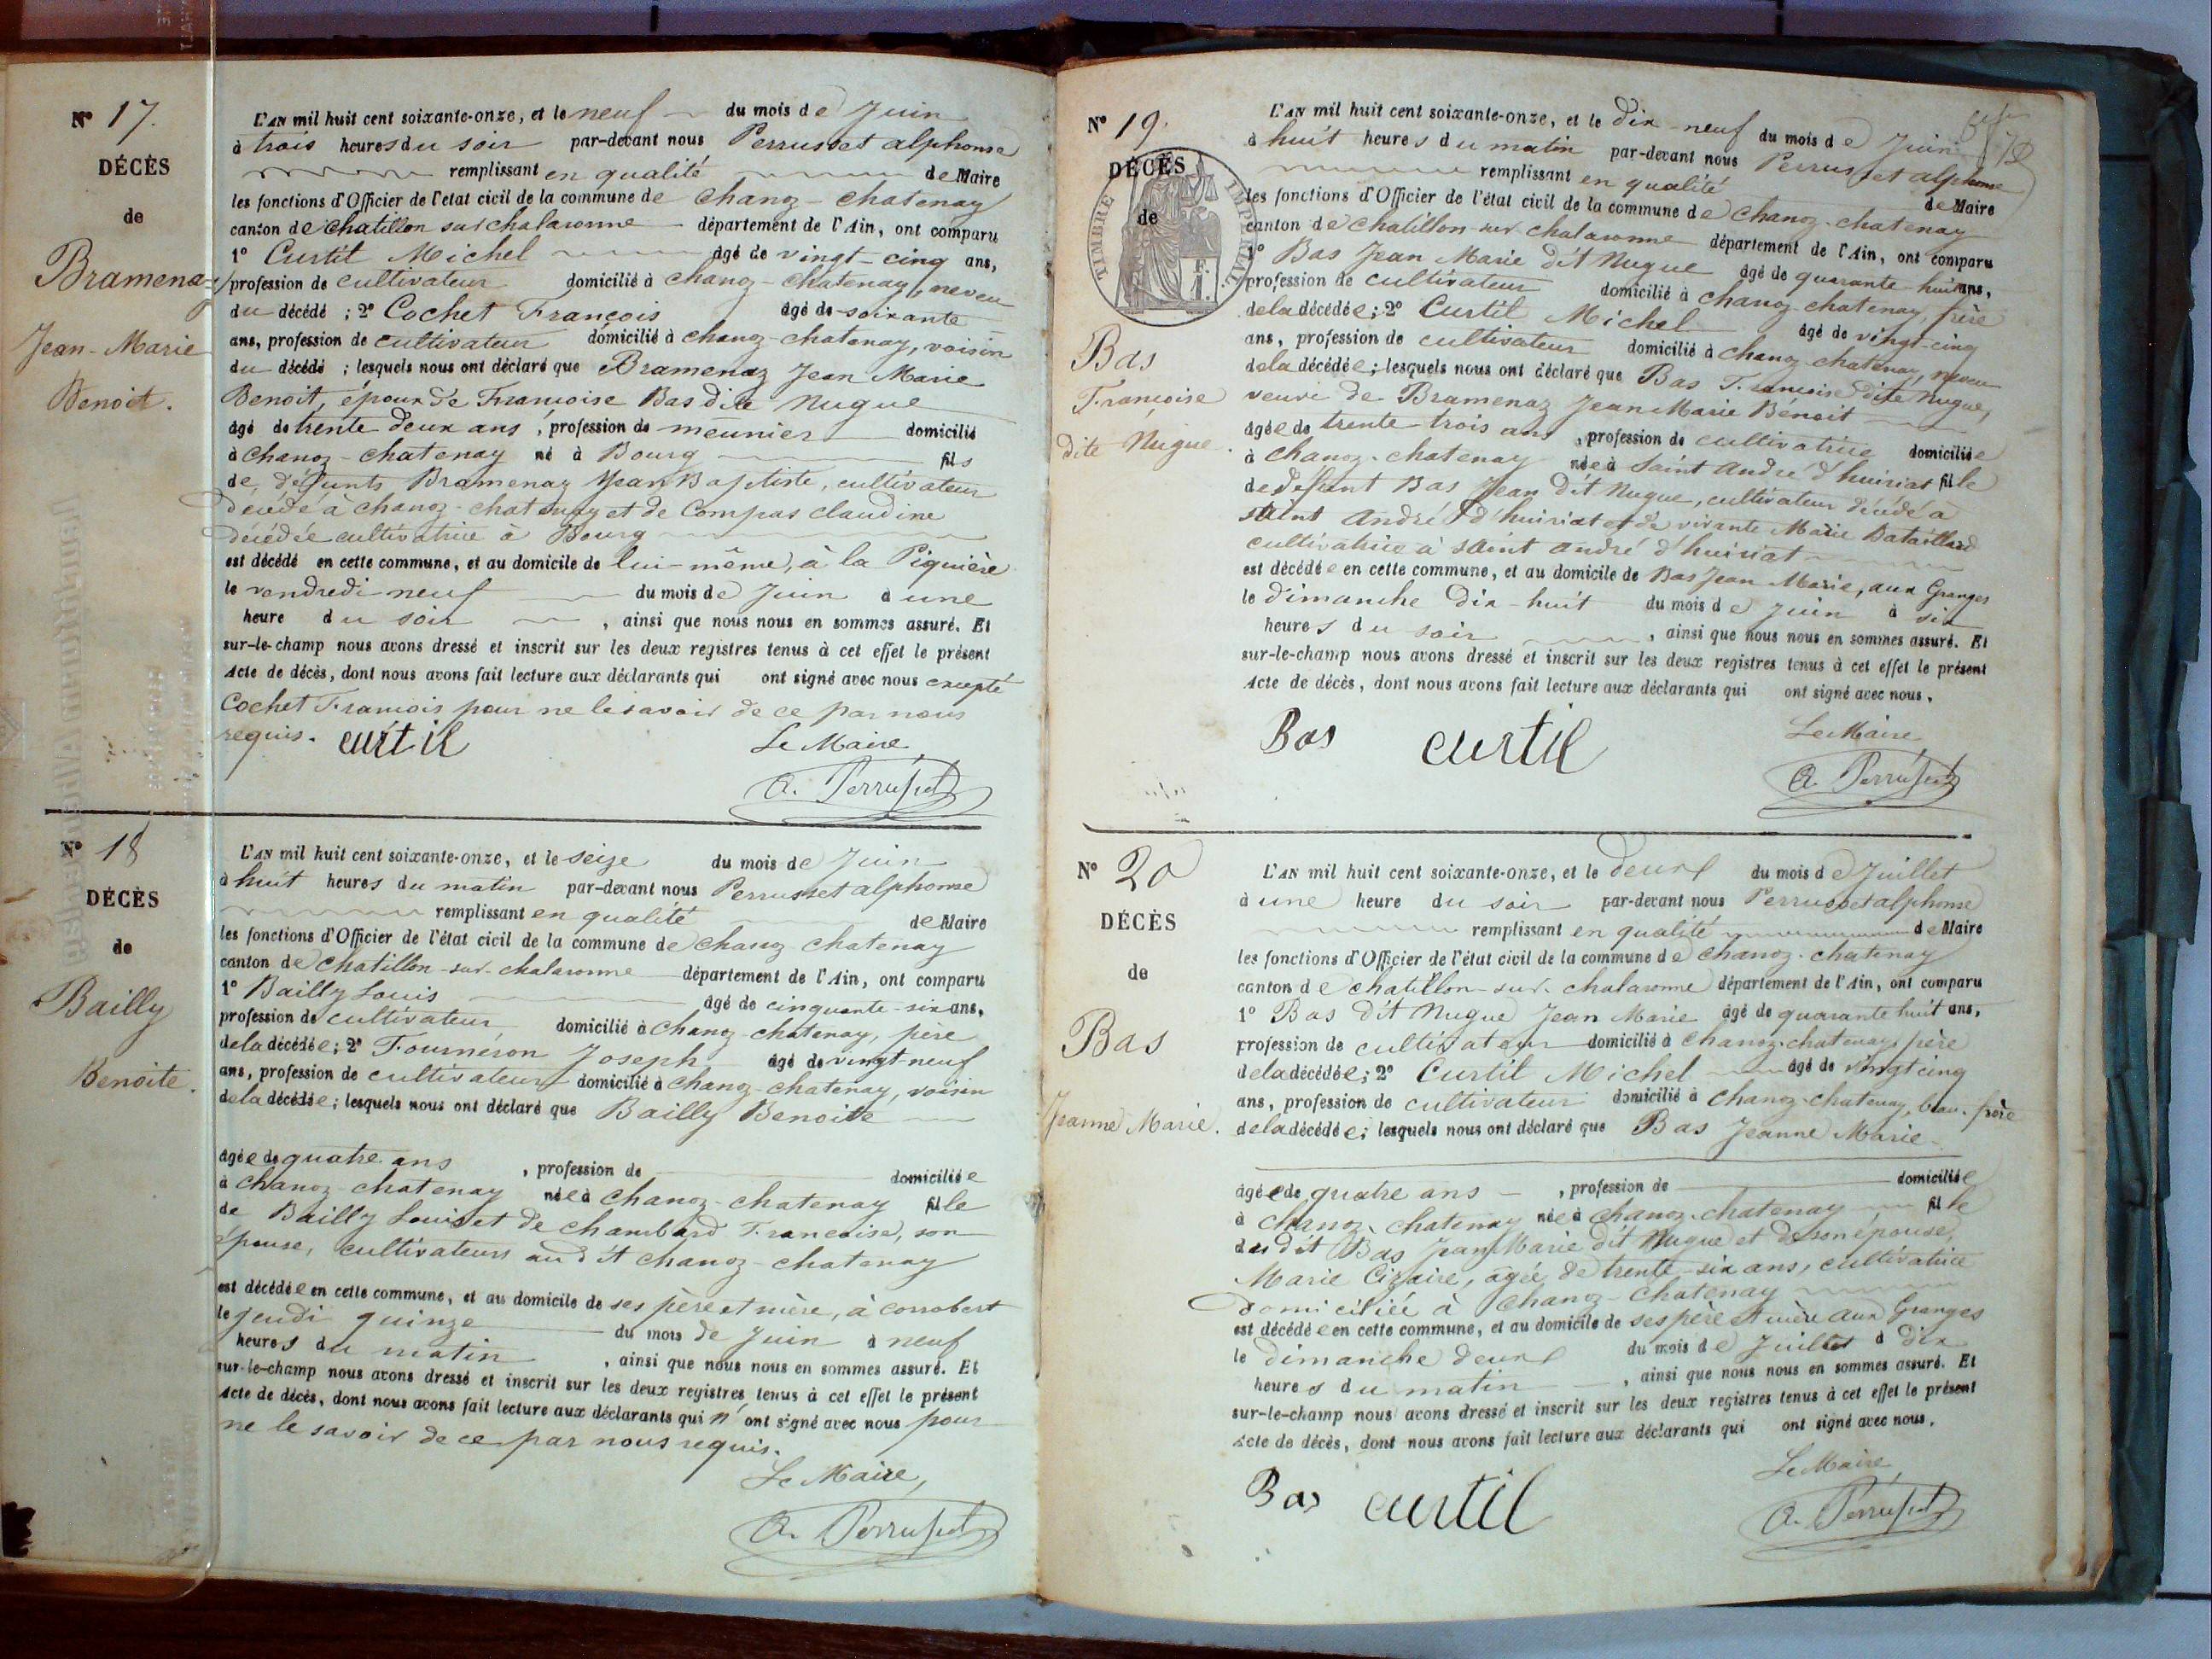 N° 17.
DÉCÈS
de
Bramenaz
Jean-Marie
Benoit.
L'AN mil huit cent soixante-onze, et le neuf du mois de Juin
à trois heures du soir par-devant nous Perrusset alphonse
remplissant en qualité de Maire
les fonctions d'Officier de l'état civil de la commune de Chanoz-Chatenay
canton de Chatillon sur chalaronne département de l'Ain, ont comparu
1° Curtil Michel âgé de vingt-cinq ans,
profession de cultivateur domicilié à Chanoz-Chatenay, neveu
du décédé ; 2° Cochet François âgé de soixante
ans, profession de cultivateur domicilié à chanoz-chatenay, voisin
du décédé ; lesquels nous ont déclaré que Bramenaz Jean Marie
Benoit, époux de Françoise Bas dite Nugue
âgé de trente deux ans, profession de meunier domicilié
à Chanoz-chatenay né à Bourg fils
de défunts Bramenaz Jean Baptiste, cultivateur
décédé à chanoz-chatenay et de Compas claudine
décédée cultivatrice à Bourg
est décédé en cette commune, et au domicile de lui-même, à la Piquière
le vendredi neuf du mois de Juin à une
heure du soir, ainsi que nous nous en sommes assuré. Et
sur-le-champ nous avons dressé et inscrit sur les deux registres tenus à cet effet le présent
Acte de décès, dont nous avons fait lecture aux déclarants qui ont signé avec nous excepté
Cochet François pour ne le savoir de ce par nous
requis. curtil Le Maire
A. Perrusset
N° 18
DÉCÈS
de
Bailly
Benoite.
L'AN mil huit cent soixante-onze, et le seize du mois de Juin
à huit heures du matin par-devant nous Perrusset alphonse
remplissant en qualité de Maire
les fonctions d'Officier de l'état civil de la commune de Chanoz chatenay
canton de Chatillon-sur-chalaronne département de l'Ain, ont comparu
1° Bailly Louis âgé de cinquante-six ans,
profession de cultivateur domicilié à Chanoz-chatenay, père
de la décédée ; 2° Fourneron Joseph âgé de vingt-neuf
ans, profession de cultivateur domicilié à Chanoz-chatenay, voisin
de la décédée ; lesquels nous ont déclaré que Bailly Benoite
âgée de quatre ans, profession de domiciliée
à Chanoz-chatenay née à Chanoz-chatenay fille
de Bailly Louis et de Chambard Francoise, son
épouse, cultivateurs au dit chanoz-chatenay
est décédée en cette commune, et au domicile de ses père et mère, à Corrobert
le jeudi quinze du mois de Juin à neuf
heures du matin, ainsi que nous nous en sommes assuré. Et
sur-le-champ nous avons dressé et inscrit sur les deux registres tenus à cet effet le présent
Acte de décès, dont nous avons fait lecture aux déclarants qui n'ont signé avec nous pour
ne le savoir de ce par nous requis.
Le Maire,
A. Perrusset
N° 19.
DÉCÈS
de
TIMBRE IMPÉRIAL
Bas
Françoise
dite Nugue.
L'AN mil huit cent soixante-onze, et le dix-neuf du mois de Juin
à huit heures du matin par-devant nous Perrusset alphonse
remplissant en qualité de Maire
les fonctions d'Officier de l'état civil de la commune de Chanoz-chatenay
canton de Chatillon-sur chalaronne département de l'Ain, ont comparu
1° Bas Jean Marie dit Nugue âgé de quarante-huit ans,
profession de cultivateur domicilié à chanoz chatenay, frère
de la décédée ; 2° Curtil Michel âgé de vingt-cinq
ans, profession de cultivateur domicilié à Chanoz-chatenay, neveu
de la décédée ; lesquels nous ont déclaré que Bas Francoise dite Nugue,
veuve de Bramenaz Jean Marie Benoit
âgée de trente-trois ans, profession de cultivatrice domiciliée
à Chanoz-chatenay née à Saint André d'huiriat fille
de défunt Bas Jean dit Nugue, cultivateur décédé à
saint André d'huiriat et de vivante Marie Bataillard
cultivatrice à saint andré d'huiriat
est décédée en cette commune, et au domicile de Bas Jean Marie, aux Granges
le dimanche dix-huit du mois de Juin à six
heures du soir, ainsi que nous nous en sommes assuré. Et
sur-le-champ nous avons dressé et inscrit sur les deux registres tenus à cet effet le présent
Acte de décès, dont nous avons fait lecture aux déclarants qui ont signé avec nous.
Bas curtil Le Maire
A. Perrusset
N° 20
DÉCÈS
de
Bas
Jeanne Marie.
L'AN mil huit cent soixante-onze, et le deux du mois de Juillet
à une heure du soir par-devant nous Perrusset alphonse
remplissant en qualité de Maire
les fonctions d'Officier de l'état civil de la commune de Chanoz-chatenay
canton de Chatillon-sur-chalaronne département de l'Ain, ont comparu
1° Bas dit Nugue Jean Marie âgé de quarante huit ans,
profession de cultivateur domicilié à Chanoz-chatenay père
de la décédée ; 2° Curtil Michel âgé de vingt cinq
ans, profession de cultivateur domicilié à Chanoz-chatenay, beau-frère
de la décédée ; lesquels nous ont déclaré que Bas Jeanne Marie
âgée de quatre ans, profession de domiciliée
à Chanoz-chatenay née à Chanoz-chatenay fille
du dit Bas Jean Marie dit Nugue et de son épouse,
Marie Cizaire, agée de trente-six ans, cultivatrice
domiciliée à Chanoz-Chatenay
est décédée en cette commune, et au domicile de ses père et mère aux Granges
le dimanche deux du mois de Juillet à dix
heures du matin, ainsi que nous nous en sommes assuré. Et
sur-le-champ nous avons dressé et inscrit sur les deux registres tenus à cet effet le présent
Acte de décès, dont nous avons fait lecture aux déclarants qui ont signé avec nous.
Bas curtil Le Maire
A. Perrusset